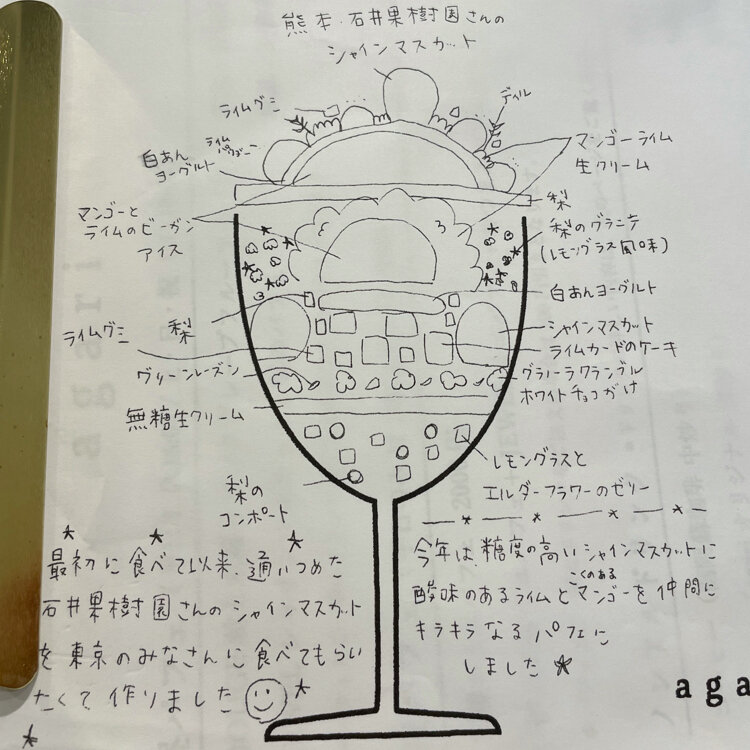 熊本・石井果樹園さんの
シャインマスカット
ライムグミ
ディル
ライム
白あん
ヨーグルト
マンゴーライム
生クリーム
マンゴーと
ライムのビーガン
アイス
梨
梨のグラニテ
(レモングラス風味)
白あんヨーグルト
梨
ライムグミ
シャインマスカット
ライムカードのケーキ
グリーンレーズン
グラノーラクランブル
ホワイトチョコがけ
無糖生クリーム
レモングラスと
エルダーフラワーのゼリー
梨の
コンポート
最初に食べて以来、通いつめた
石井果樹園さんのシャインマスカット
を東京のみなさんに食べてもらい
たくて作りました
今年は、糖度の高いシャインマスカットに
酸味のあるライムとこくのあるマンゴーを仲間に
キラキラなるパフェに
しました
aga